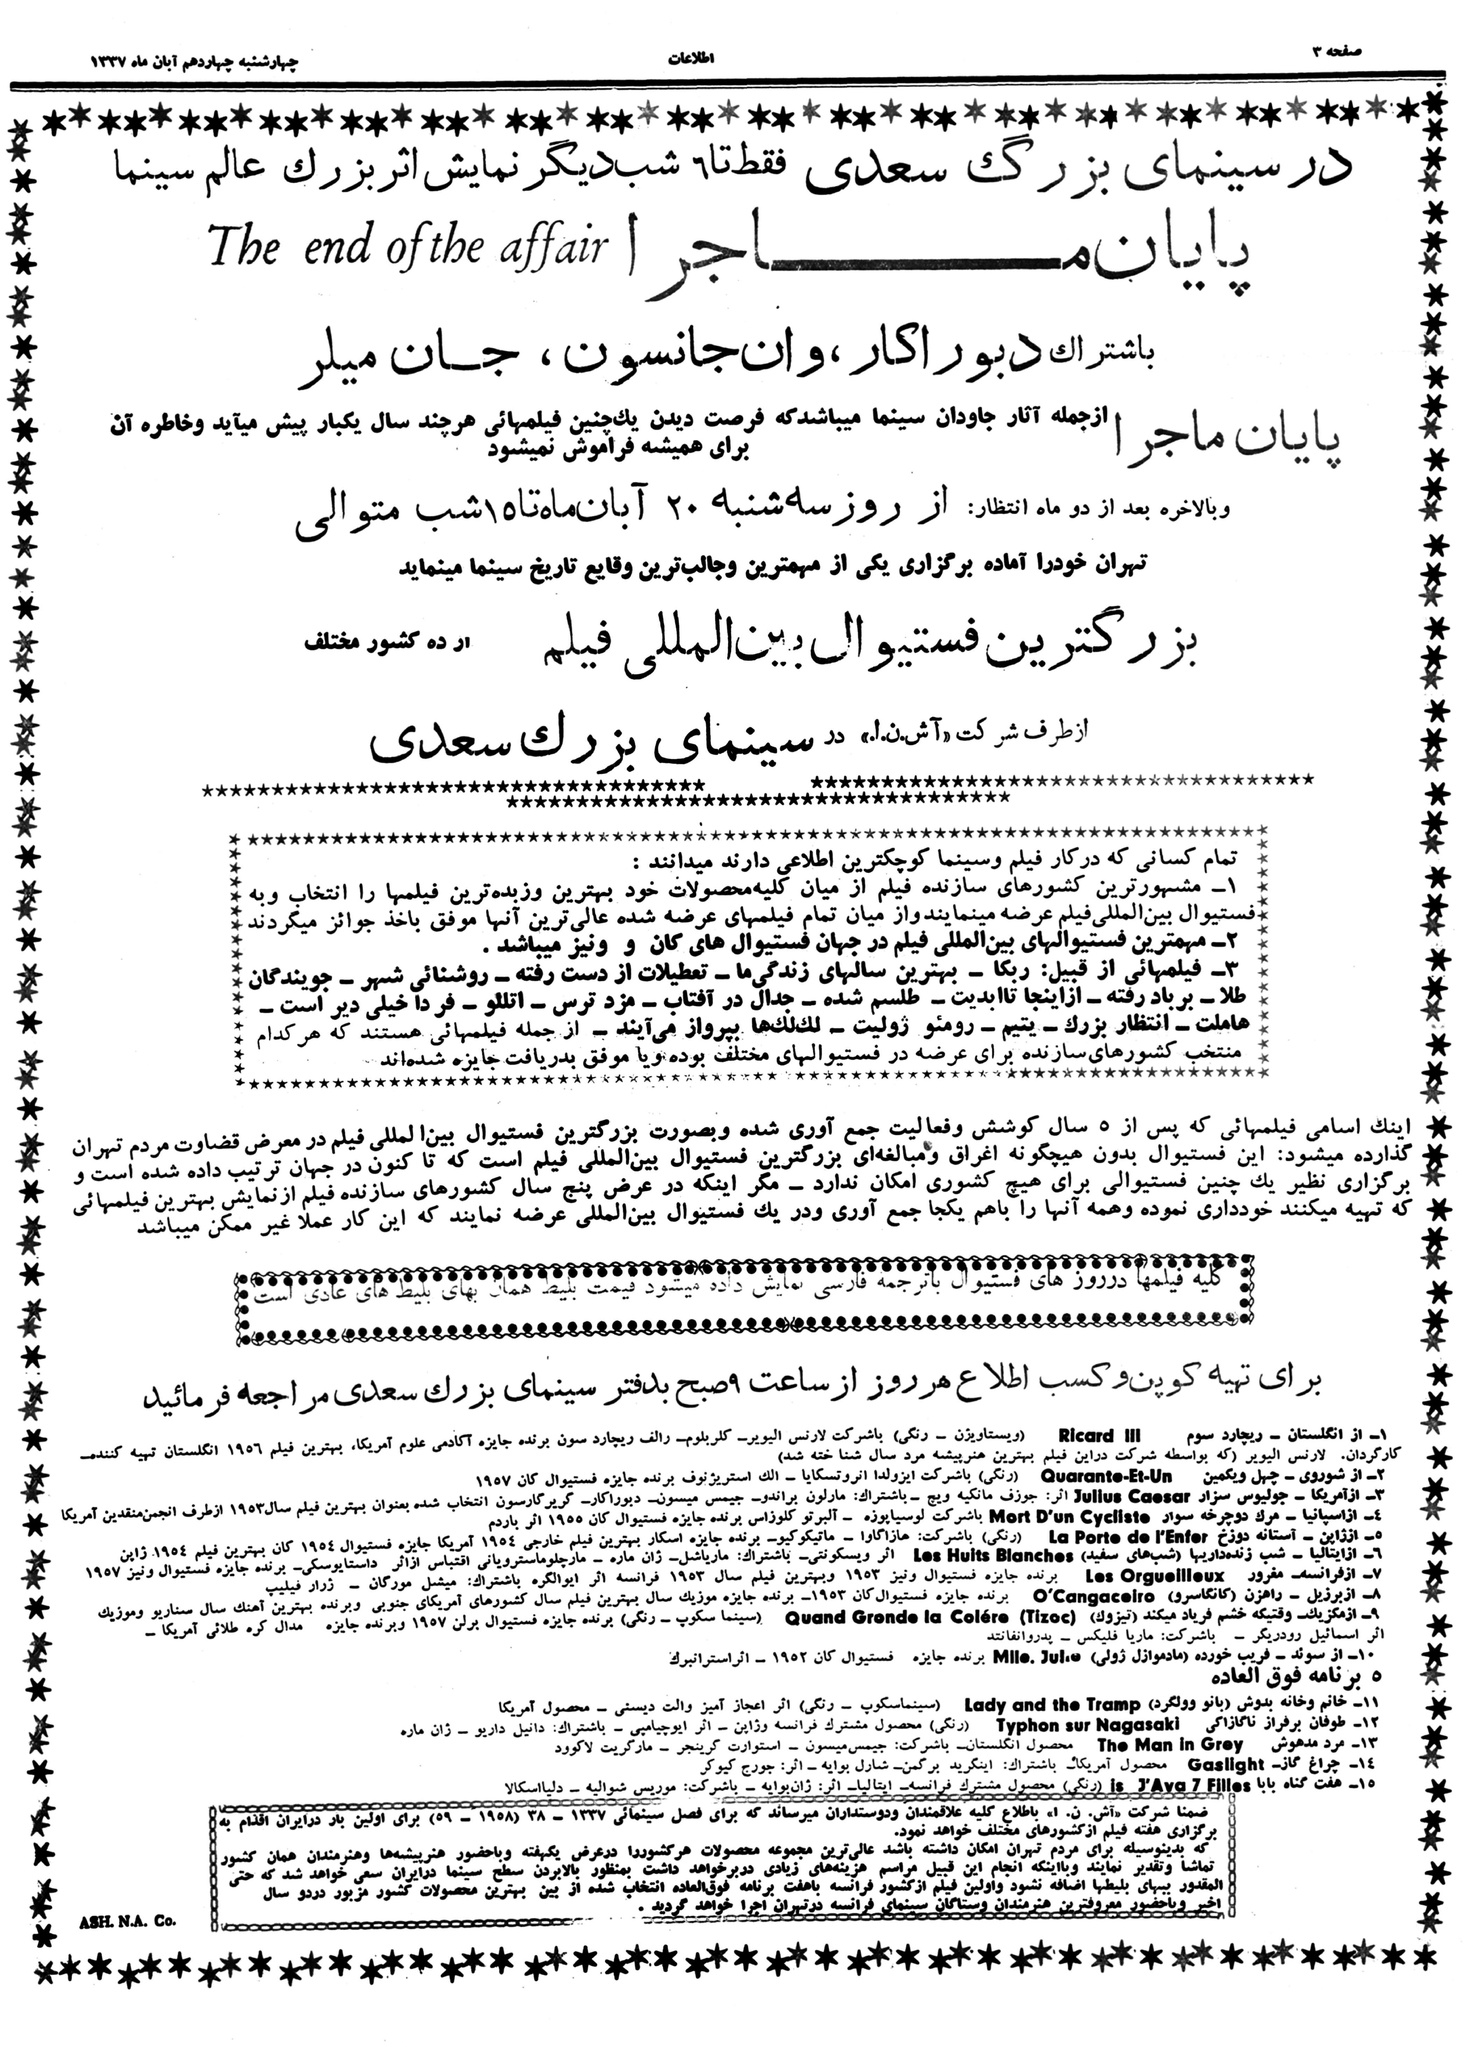 صفحه ۳
اطلاعات
چهارشنبه چهاردهم آبان ماه ۱۳۳۷
در سینمای بزرگ سعدی فقط تا ۶ شب دیگر نمایش اثر بزرك عالم سینما
پایان مـــاجرا The end of the affair
باشتراك دبوراکار ، وان جانسون ، جــان میلر
پایان ماجرا ازجمله آثار جاودان سینما میباشدکه فرصت دیدن یك‌چنین فیلمهائی هرچند سال یکبار پیش میآید وخاطره آن
برای همیشه فراموش نمیشود
وبالاخره بعد از دو ماه انتظار: از روز سه‌شنبه ۲۰ آبان‌ماه تا ۱۵ شب متوالی
تهران خودرا آماده برگزاری یکی از مهمترین وجالب‌ترین وقایع تاریخ سینما مینماید
بزرگترین فستیوال بین‌المللی فیلم از ده کشور مختلف
ازطرف شرکت «آش.ن.ا.» در سینمای بزرك سعدی
تمام کسانی که درکار فیلم وسینما کوچکترین اطلاعی دارند میدانند :
۱ـ مشهورترین کشورهای سازنده فیلم از میان کلیه‌محصولات خود بهترین وزبده‌ترین فیلمها را انتخاب وبه
فستیوال بین‌المللی‌فیلم عرضه مینمایندواز میان تمام فیلمهای عرضه شده عالی‌ترین آنها موفق باخذ جوائز میگردند
۲ـ مهمترین فستیوالهای بین‌المللی فیلم در جهان فستیوال های کان و ونیز میباشد .
۳ـ فیلمهائی از قبیل: ربکا ـ بهترین سالهای زندگی‌ما ـ تعطیلات از دست رفته ـ روشنائی شهر ـ جویندگان
طلا ـ برباد رفته ـ ازاینجا تاابدیت ـ طلسم شده ـ جدال در آفتاب ـ مزد ترس ـ اتللو ـ فردا خیلی دیر است ـ
هاملت ـ انتظار بزرك ـ یتیم ـ رومئو ژولیت ـ لك‌لك‌ها بپرواز می‌آیند ـ از جمله فیلمهائی هستند که هرکدام
منتخب کشورهای‌سازنده برای عرضه در فستیوالهای مختلف بوده‌ویا موفق بدریافت جایزه شده‌اند
اینك اسامی فیلمهائی که پس از ۵ سال کوشش وفعالیت جمع آوری شده وبصورت بزرگترین فستیوال بین‌المللی فیلم در معرض قضاوت مردم تهران
گذارده میشود: این فستیوال بدون هیچگونه اغراق ومبالغه‌ای بزرگترین فستیوال بین‌المللی فیلم است که تا کنون در جهان ترتیب داده شده است و
برگزاری نظیر یك چنین فستیوالی برای هیچ کشوری امکان ندارد ـ مگر اینکه در عرض پنج سال کشورهای سازنده فیلم ازنمایش بهترین فیلمهائی
که تهیه میکنند خودداری نموده وهمه آنها را باهم یکجا جمع آوری ودر یك فستیوال بین‌المللی عرضه نمایند که این کار عملا غیر ممکن میباشد
کلیه فیلمها درروز های فستیوال باترجمه فارسی نمایش داده میشود قیمت بلیط همان بهای بلیط های عادی است
برای تهیه کوپن‌وکسب اطلاع هرروز ازساعت ۹صبح بدفتر سینمای بزرك سعدی مراجعه فرمائید
۱ـ از انگلستان ـ ریچارد سوم Ricard III (ویستاویژن ـ رنگی) باشرکت لارنس الیویر ـ کلربلوم ـ رالف ریچارد سون برنده جایزه آکادمی علوم آمریکا، بهترین فیلم ۱۹۵۶ انگلستان تهیه کننده ـ
کارگردان. لارنس الیویر (که بواسطه شرکت دراین فیلم بهترین هنرپیشه مرد سال شناخته شد)
۲ـ از شوروی ـ چهل ویکمین Quarante-Et-Un (رنگی) باشرکت ایزولدا ایزوتسکایا ـ الك استریژنوف برنده جایزه فستیوال کان ۱۹۵۷
۳ـ ازآمریکا ـ جولیوس سزار Julius Caesar اثر: جوزف مانکیه ویچ ـ باشتراك: مارلون براندو ـ جیمس میسون ـ دبوراکار ـ گریرگارسون انتخاب شده بعنوان بهترین فیلم سال ۱۹۵۳ ازطرف انجمن‌منقدین آمریکا
۴ـ ازاسپانیا ـ مرك دوچرخه سوار Mort D'un Cycliste باشرکت لوسیابوزه ـ آلبرتو کلوزاس برنده جایزه فستیوال کان ۱۹۵۵ اثر باردم
۵ـ اززاپن ـ آستانه دوزخ La Porte de l'Enfer (رنگی) باشرکت: هازاگاوا ـ ماتیکوکیو ـ برنده جایزه اسکار بهترین فیلم خارجی ۱۹۵۴ آمریکا جایزه فستیوال ۱۹۵۴ کان بهترین فیلم ۱۹۵۴ ژاپن
۶ـ ازایتالیا ـ شب زنده‌داریها (شب‌های سفید) Les Huits Blanches اثر ویسکونتی ـ باشتراك: ماریاشل ـ ژان ماره ـ مارچلوماسترویانی اقتباس ازاثر داستایوسکی ـ برنده جایزه فستیوال ونیز ۱۹۵۷
۷ـ ازفرانسه ـ مغرور Les Orgueilloux برنده جایزه فستیوال ونیز ۱۹۵۳ وبهترین فیلم سال ۱۹۵۳ فرانسه اثر ایوالگره باشتراك: میشل مورگان ـ ژرار فیلیپ
۸ـ ازبرزیل ـ راهزن (کانگاسرو) O'Cangaceiro برنده جایزه فستیوال‌کان ۱۹۵۳ـ برنده جایزه موزیك سال بهترین فیلم سال کشورهای آمریکای جنوبی وبرنده بهترین آهنك سال سناریو وموزیك
۹ـ ازمکزیك ـ وقتیکه خشم فریاد میکند (تیزوك) Quand Gronde la Colére (Tizoc) (سینما سکوپ ـ رنگی) برنده جایزه فستیوال برلن ۱۹۵۷ وبرنده جایزه مدال کره طلائی آمریکا ـ
اثر اسمائیل رودریگز ـ باشرکت: ماریا فلیکس ـ پدروانفانتد
۱۰ـ از سوئد ـ فریب خورده (مادموازل ژولی) Mlle. Julie برنده جایزه فستیوال کان ۱۹۵۲ ـ اثراسترانبرك
۵ برنامه فوق العاده
۱۱ـ خانم وخانه بدوش (بانو وولگرد) Lady and the Tramp (سینماسکوپ ـ رنگی) اثر اعجاز آمیز والت دیسنی ـ محصول آمریکا
۱۲ـ طوفان برفراز ناگازاکی Typhon sur Nagasaki (رنگی) محصول مشترك فرانسه وژاپن ـ اثر ایوچیامپی ـ باشتراك: دانیل داریو ـ ژان ماره
۱۳ـ مرد مدهوش The Man in Grey محصول انگلستان ـ باشرکت: جیمس‌میسون ـ استوارت گرینجر ـ مارگریت لاکوود
۱۴ـ چراغ گاز ـ Gaslight محصول آمریکا باشتراك: اینگرید برگمن ـ شارل بوایه ـ اثر: جورج کیوکر
۱۵ـ هفت گناه بابا is J'Ava 7 Filles (رنگی) محصول مشترك فرانسه ـ ایتالیا ـ اثر: ژان‌بوایه ـ باشرکت: موریس شوالیه ـ دلیااسکالا
ضمنا شرکت «آش. ن. ا» باطلاع کلیه علاقمندان ودوستداران میرساند که برای فصل سینمائی ۱۳۳۷ ـ ۳۸ (۱۹۵۸ ـ ۵۹) برای اولین بار درایران اقدام به
برگزاری هفته فیلم ازکشورهای مختلف خواهد نمود.
که بدینوسیله برای مردم تهران امکان داشته باشد عالی‌ترین مجموعه محصولات هرکشوررا درعرض یکهفته وباحضور هنرپیشه‌ها وهنرمندان همان کشور
تماشا وتقدیر نمایند وبااینکه انجام این قبیل مراسم هزینه‌های زیادی دربرخواهد داشت بمنظور بالابردن سطح سینما درایران سعی خواهد شد که حتی
المقدور ببهای بلیطها اضافه نشود واولین فیلم ازکشور فرانسه باهفت برنامه فوق‌العاده انتخاب شده از بین بهترین محصولات کشور مزبور دردو سال
اخیر وباحضور معروفترین هنرمندان وستارگان سینمای فرانسه درتهران اجرا خواهد گردید .
ASH. N.A. Co.